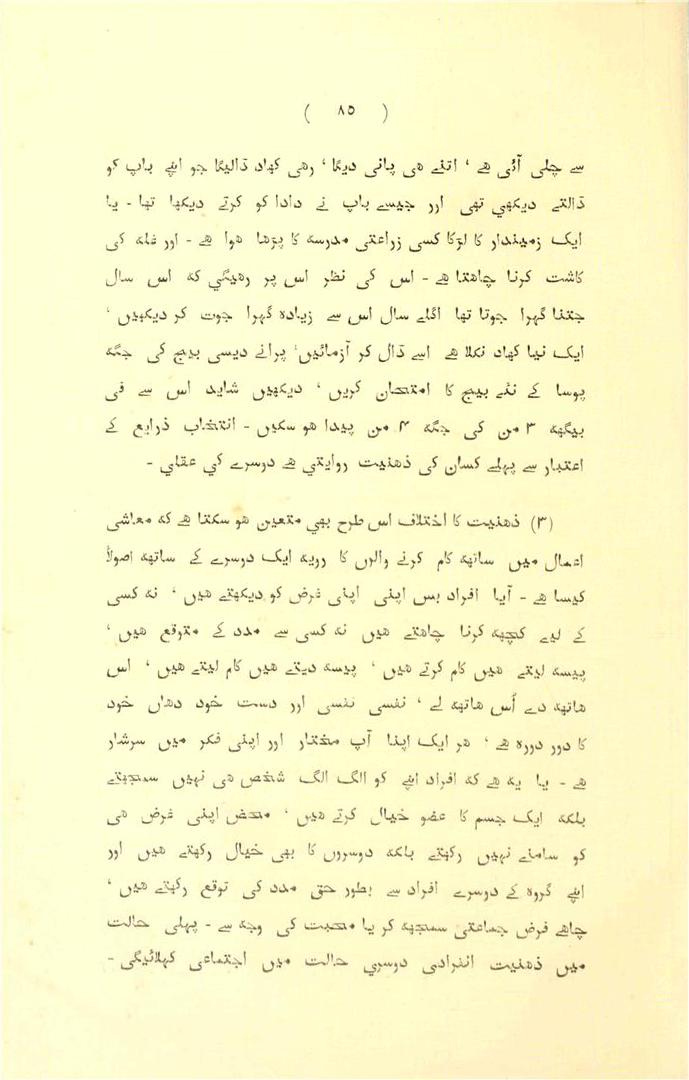 ( ۸۵ )
سے چلی آئی ہے ' اتنے ہی پانی دیگا ' وہی کھاد ڈالیگا جو اپنے باپ کو
ڈالتے دیکھی تھی اور جیسے باپ نے دادا کو کرتے دیکھا تھا - یا
ایک زمیندار کا لڑکا کسی زراعتی مدرسہ کا پڑھا ہوا ہے - اور غلہ کی
کاشت کرنا چاہتا ہے - اس کی نظر اس پر رہیگی کہ اس سال
جتنا گہرا جوتا تھا اگلے سال اس سے زیادہ گہرا جوت کر دیکھیں '
ایک نیا کھاد نکلا ہے اسے ڈال کر آزمائیں ' پرانے دیسی بیج کی جگہ
پوسا کے نئے بیج کا امتحان کریں ' دیکھیں شاید اس سے فی
بیگھہ ۳ من کی جگہ ۴ من پیدا ہو سکیں - انتخاب ذرایع کے
اعتبار سے پہلے کسان کی ذہنیت روایتی ہے دوسرے کی عقلی -
(۳) ذہنیت کا اختلاف اس طرح بھی متعین ہو سکتا ہے کہ معاشی
اعمال میں ساتھہ کام کرنے والوں کا رویہ ایک دوسرے کے ساتھہ اصولاً
کیسا ہے - آیا افراد بس اپنی اپنی غرض کو دیکھتے ہیں ' نہ کسی
کے لیے کچھہ کرنا چاہتے ہیں نہ کسی سے مدد کے متوقع ہیں '
پیسہ لیتے ہیں کام کرتے ہیں ' پیسہ دیتے ہیں کام لیتے ہیں ' اس
ہاتھہ دے اُس ہاتھہ لے ' نفسی نفسی اور دست خود دہاں خود
کا دور دورہ ہے ' ہر ایک اپنا آپ مختار اور اپنی فکر میں سرشار
ہے - یا یہ ہے کہ افراد اپنے کو الگ الگ شخص ہی نہیں سمجھتے
بلکہ ایک جسم کا عضو خیال کرتے ہیں ' محض اپنی غرض ہی
کو سامنے نہیں رکھتے بلکہ دوسروں کا بھی خیال رکھتے ہیں اور
اپنے گروہ کے دوسرے افراد سے بطور حق مدد کی توقع رکھتے ہیں '
چاہے فرض جماعتی سمجھہ کر یا محبت کی وجہ سے - پہلی حالت
میں ذہنیت انفرادی دوسری حالت میں اجتماعی کہلائیگی -